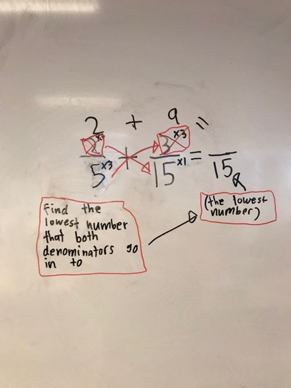 2 + 9 =
×3
5 ×3 + 15 ×1 = 15
find the
lowest number
that both
denominators go
in to
(the lowest
number)